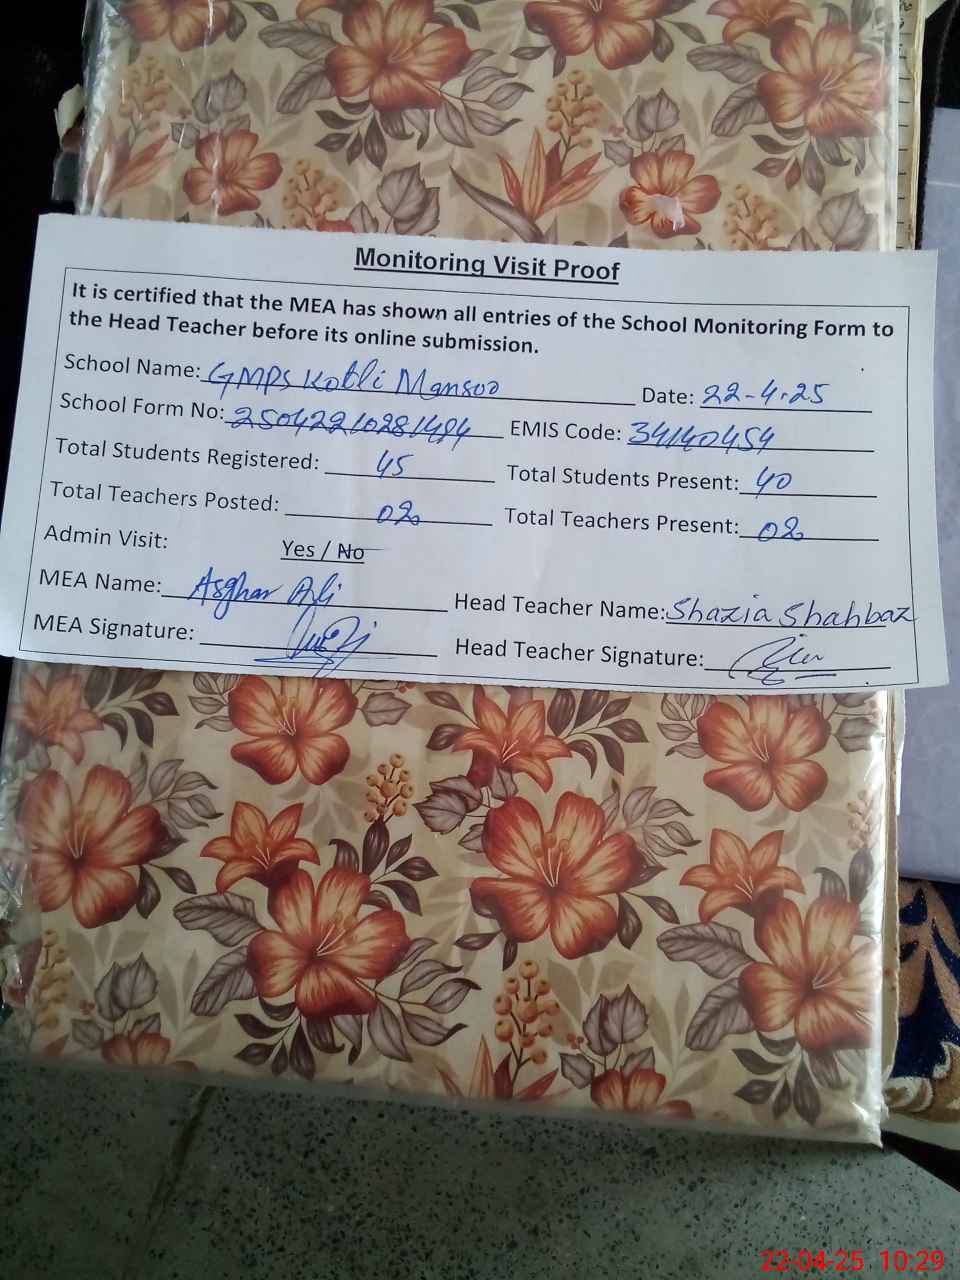 Monitoring Visit Proof
It is certified that the MEA has shown all entries of the School Monitoring Form to
the Head Teacher before its online submission.
School Name: GMPS Kotli Mansoo Date: 22-4-25
School Form No: 25042210281494 EMIS Code: 34140454
Total Students Registered: 45 Total Students Present: 40
Total Teachers Posted: 02 Total Teachers Present: 02
Admin Visit: Yes / No
MEA Name: Asghar Ali Head Teacher Name: Shazia Shahbaz
MEA Signature: Head Teacher Signature:
22-04-25 10:29